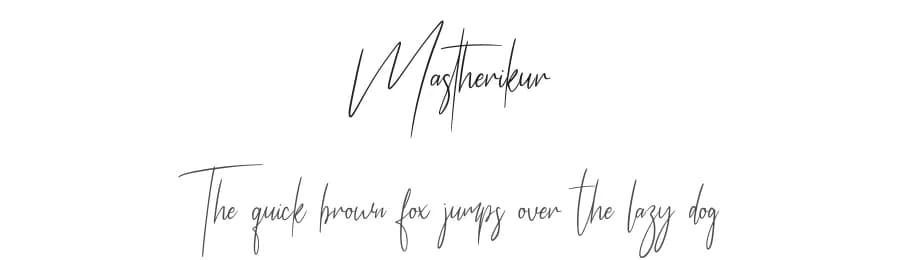 Mastherikur
The quick brown fox jumps over the lazy dog